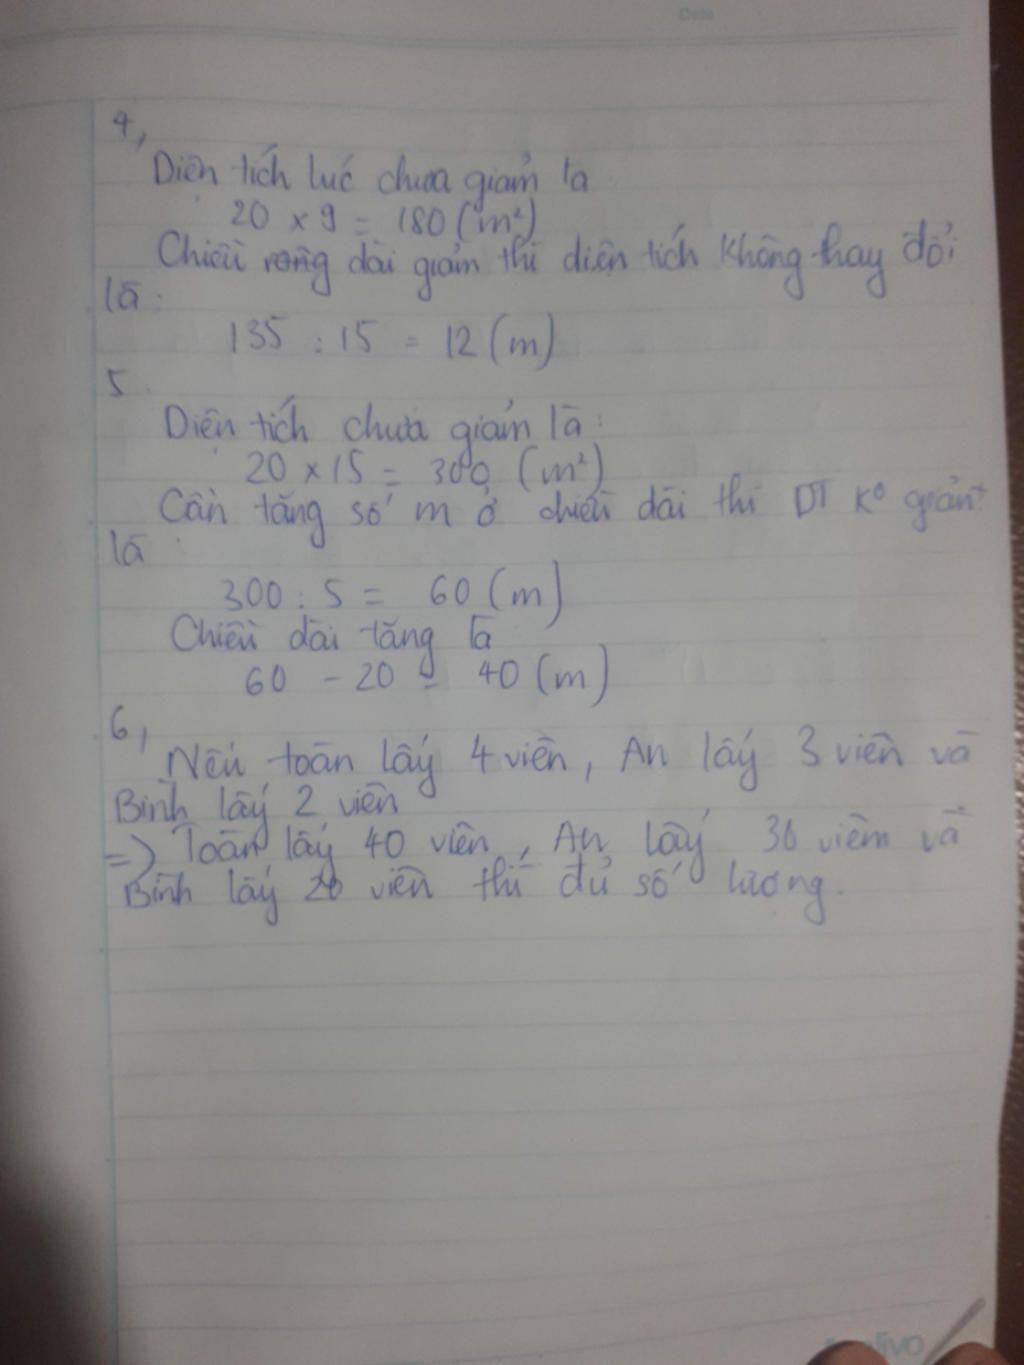 Date
4,
Diện tích lúc chưa giảm là
20 x 9 = 180 (m²)
Chiều rộng dài giảm thì diện tích không thay đổi
là:
135 : 15 = 12 (m)
5.
Diện tích chưa giảm là:
20 x 15 = 300 (m²)
Cần tăng số m ở chiều dài thì DT k° giảm
là
300 : 5 = 60 (m)
Chiều dài tăng là
60 - 20 = 40 (m)
6,
Nếu toàn lấy 4 viên, An lấy 3 viên và
Bình lấy 2 viên
=> Toàn lấy 40 viên, An lấy 30 viêm và
Bình lấy 20 viên thì đủ số lượng.